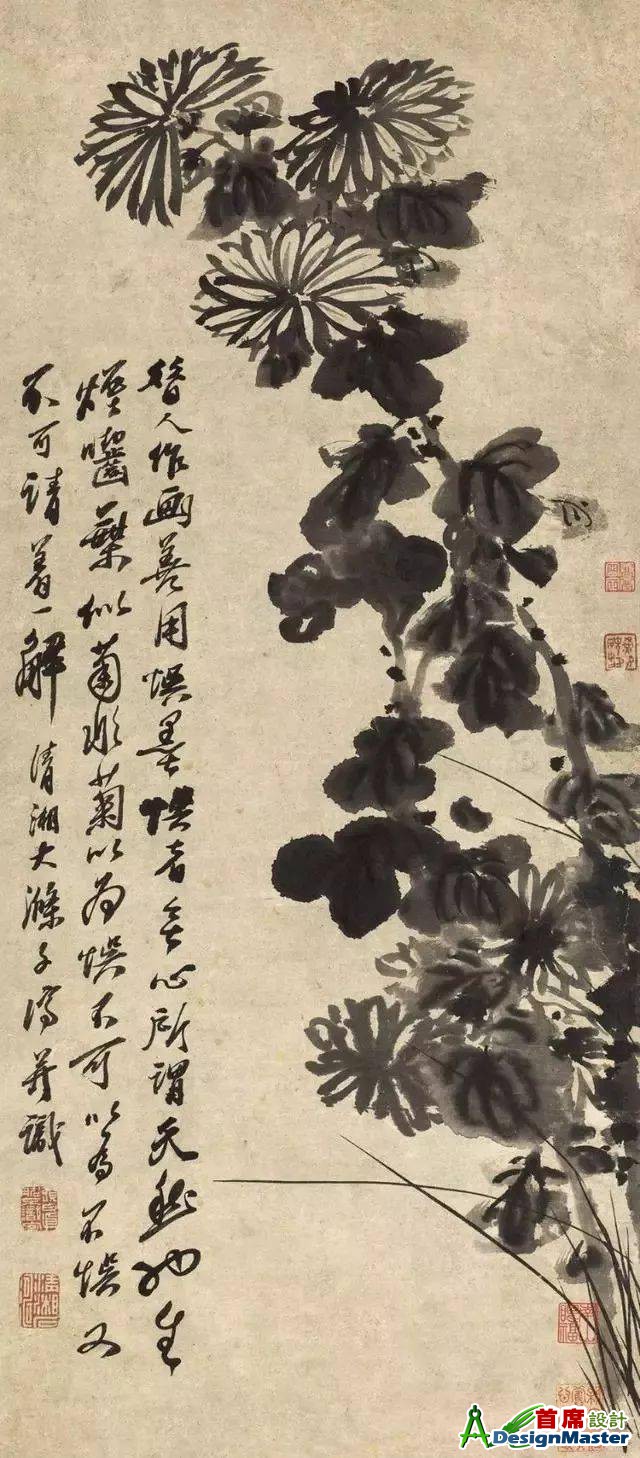 昔人作画善用悞墨悞者無心所謂天然如生
葉似菊非菊以為悞不可以為不悞又
不可請着一解 清湘大滌子濟并識
首席設計
ADesignMaster